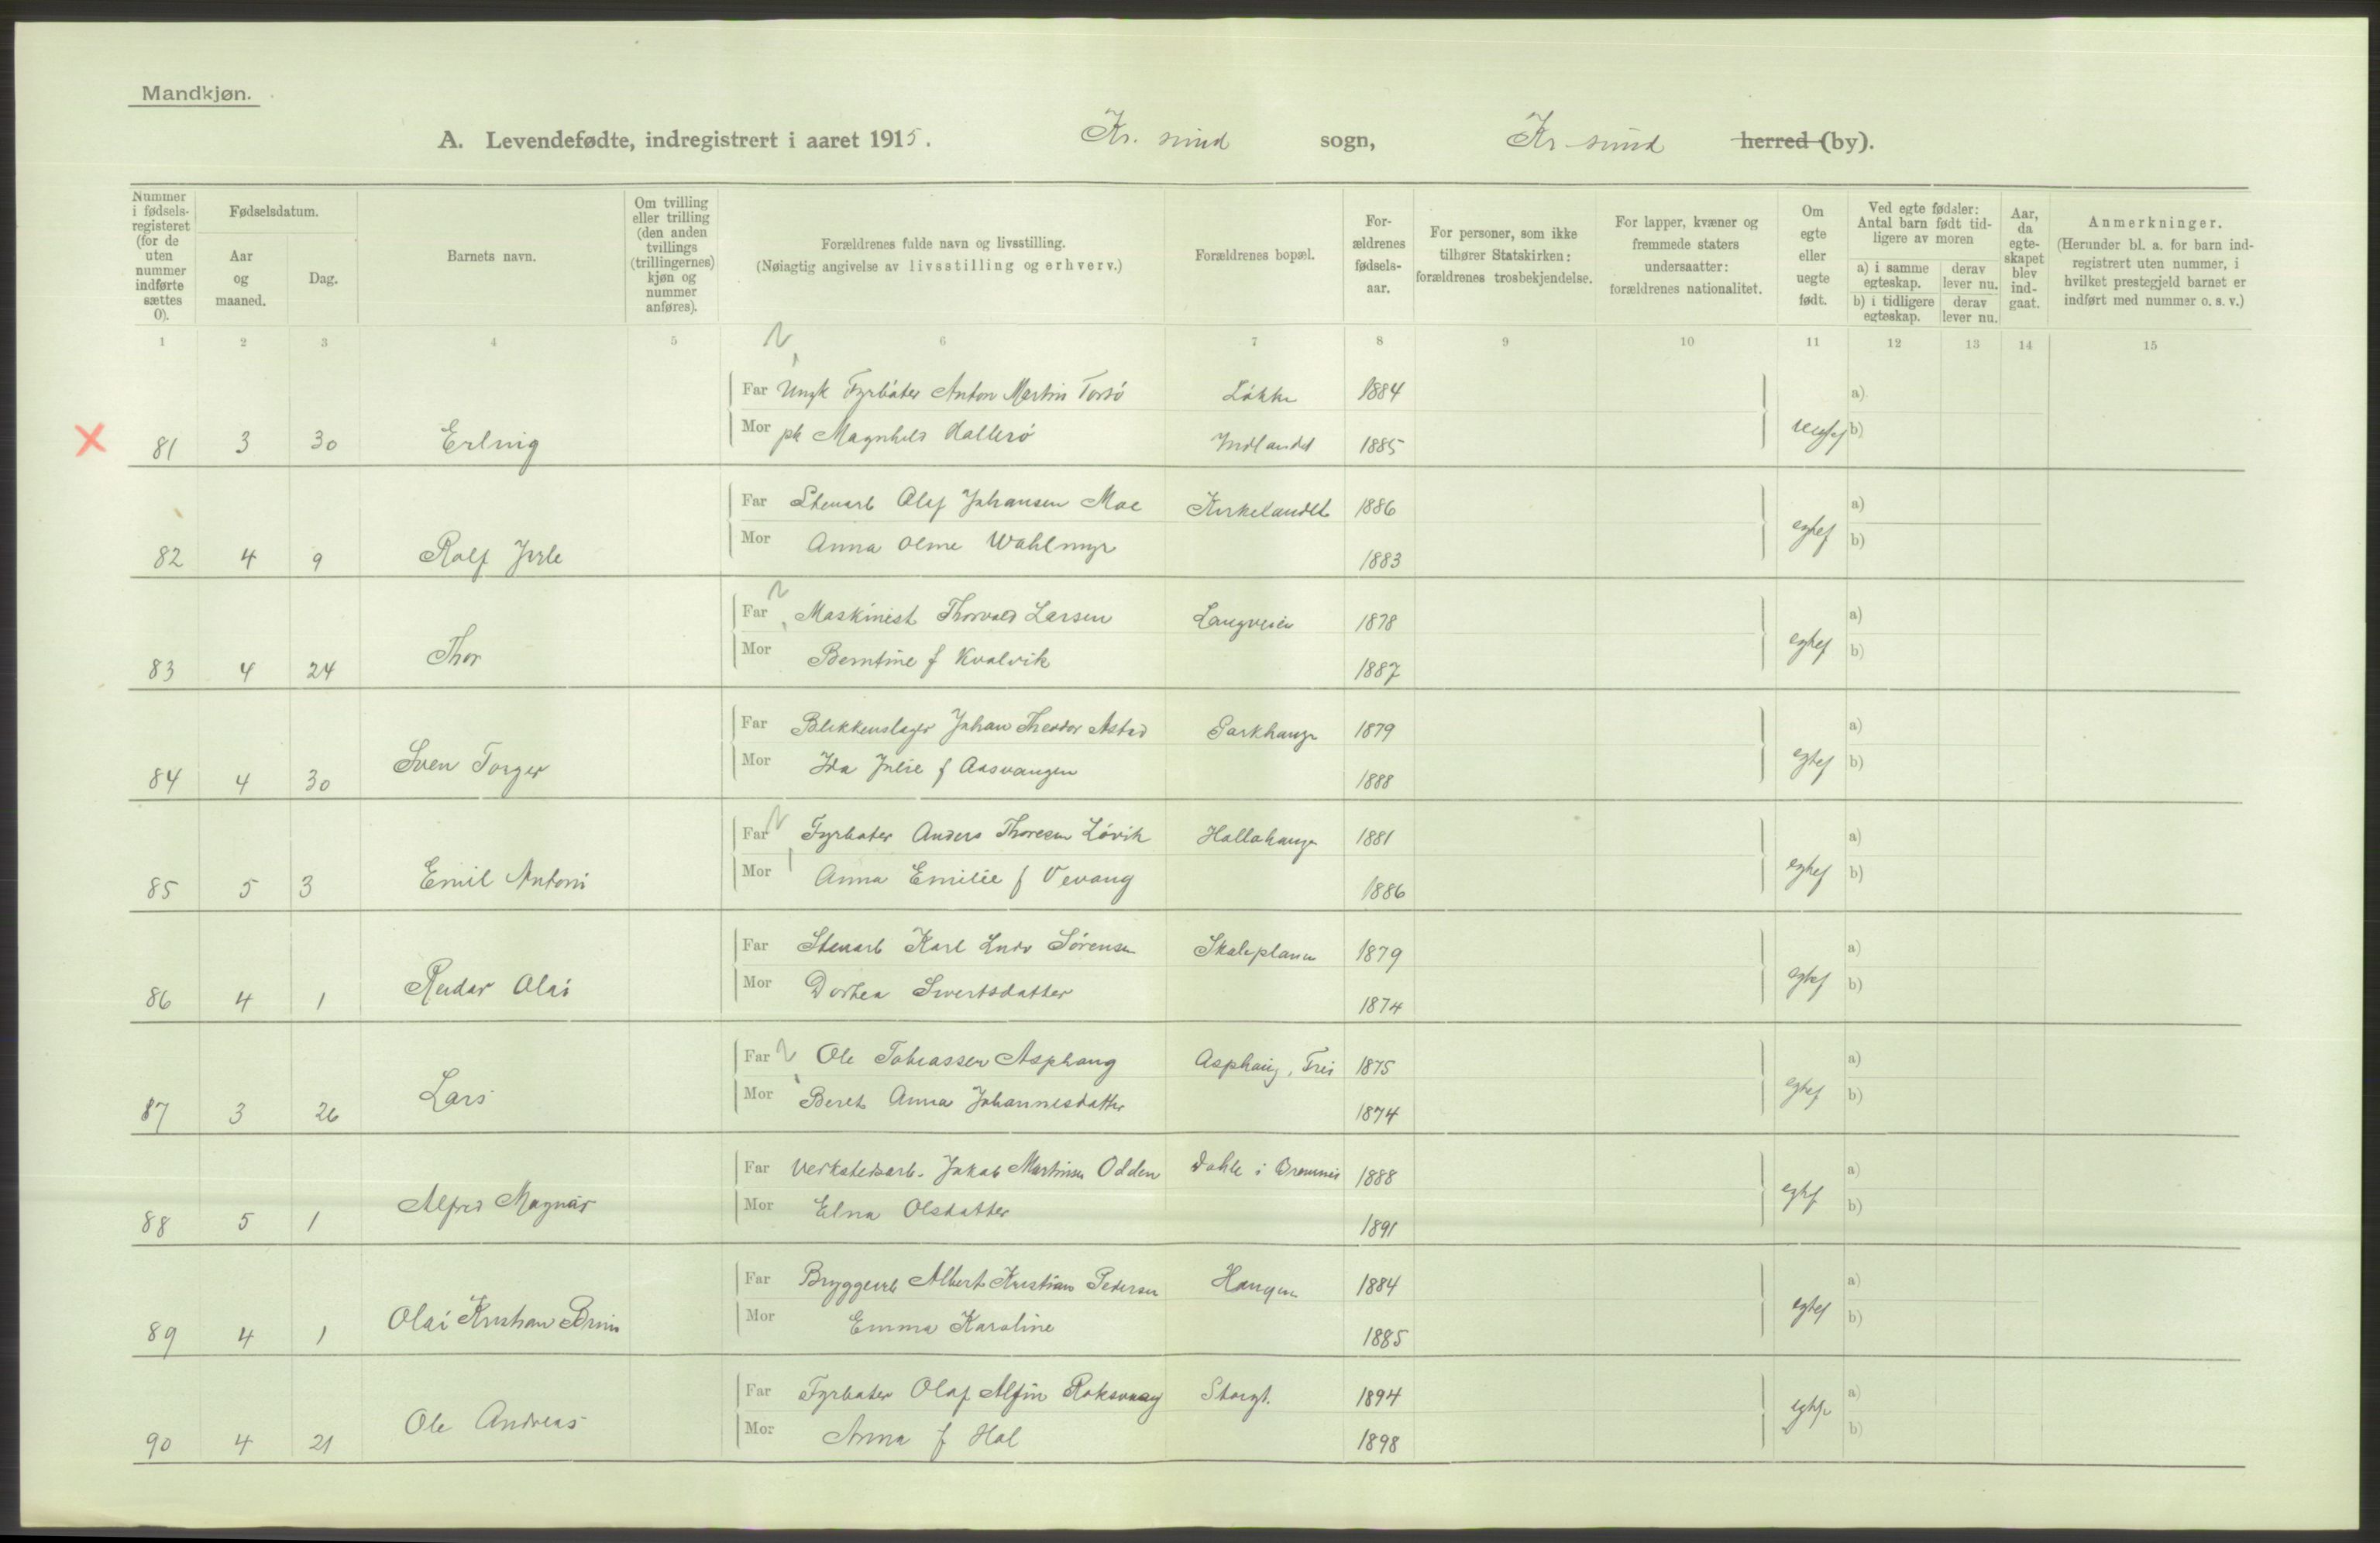 Mandkjøn.
A. Levendefødte, indregistrert i aaret 1915. Kr. sund sogn, Kr sund herred (by).
Nummer i fødsels-registeret (for de uten nummer indførte sættes 0).
Fødselsdatum.
Aar og maaned.
Dag.
Barnets navn.
Om tvilling eller trilling (den anden tvillings (trillingernes) kjøn og nummer anføres).
Forældrenes fulde navn og livsstilling.
(Nøiagtig angivelse av livsstilling og erhverv.)
Forældrenes bopæl.
For-ældrenes fødsels-aar.
For personer, som ikke tilhører Statskirken: forældrenes trosbekjendelse.
For lapper, kvæner og fremmede staters undersaatter: forældrenes nationalitet.
Om egte eller uegte født.
Ved egte fødsler: Antal barn født tid-ligere av moren
a) i samme egteskap. derav lever nu.
b) i tidligere egteskap. derav lever nu.
Aar, da egte-skapet blev ind-gaat.
Anmerkninger.
(Herunder bl. a. for barn ind-registrert uten nummer, i hvilket prestegjeld barnet er indført med nummer o. s. v.)
1 2 3 4 5 6 7 8 9 10 11 12 13 14 15
Far Ungk Fyrbøter Anton Martin Torsø Løkke 1884 a)
81 3 30 Erling Mor pk Magnhild Hallerö Indlandet 1885 b)
Far Stenarb Olaf Johansen Moe Kirkelandet 1886 a)
82 4 9 Rolf Mor Anna Oline 1883 egtef b)
Far Maskinist Thorvald Larsen Langveien 1878 a)
83 4 24 Thor Mor Berntine f Kvalvik 1887 egtef b)
Far Blikkenslager Johan Theodor 1879 a)
84 4 30 Sven Torger Mor Ida Julie f Aasvangen 1888 egtef b)
Far Fyrbøter Anders Thoresen Løvik 1881 a)
85 5 3 Emil Antoni Mor Anna Emilie f Vevang 1886 egtef b)
Far Stenarb Karl Ludv Sørensen 1879 a)
86 4 1 Reidar Olai Mor Dorthea Sivertsdatter 1874 egtef b)
Far Ole Tobiassen Asphaug Asphaug, Frei 1875 a)
87 3 26 Lars Mor Beret Anna Johannesdatter 1874 egtef b)
Far Verkstedsarb. Jakob Martinsen Odden Dahle i Bremnes 1888 a)
88 5 1 Alfred Magnar Mor Elna Olsdatter 1891 egtef b)
Far Bryggearb Albert Kristian Pedersen Haugen 1884 a)
89 4 1 Olai Kristian Mor Emma Karoline 1885 egtef b)
Far Fyrbøter Olaf Alfin Roksvaag Storgt. 1894 a)
90 4 21 Ole Andreas Mor Anna f Hol 1898 egtef b)